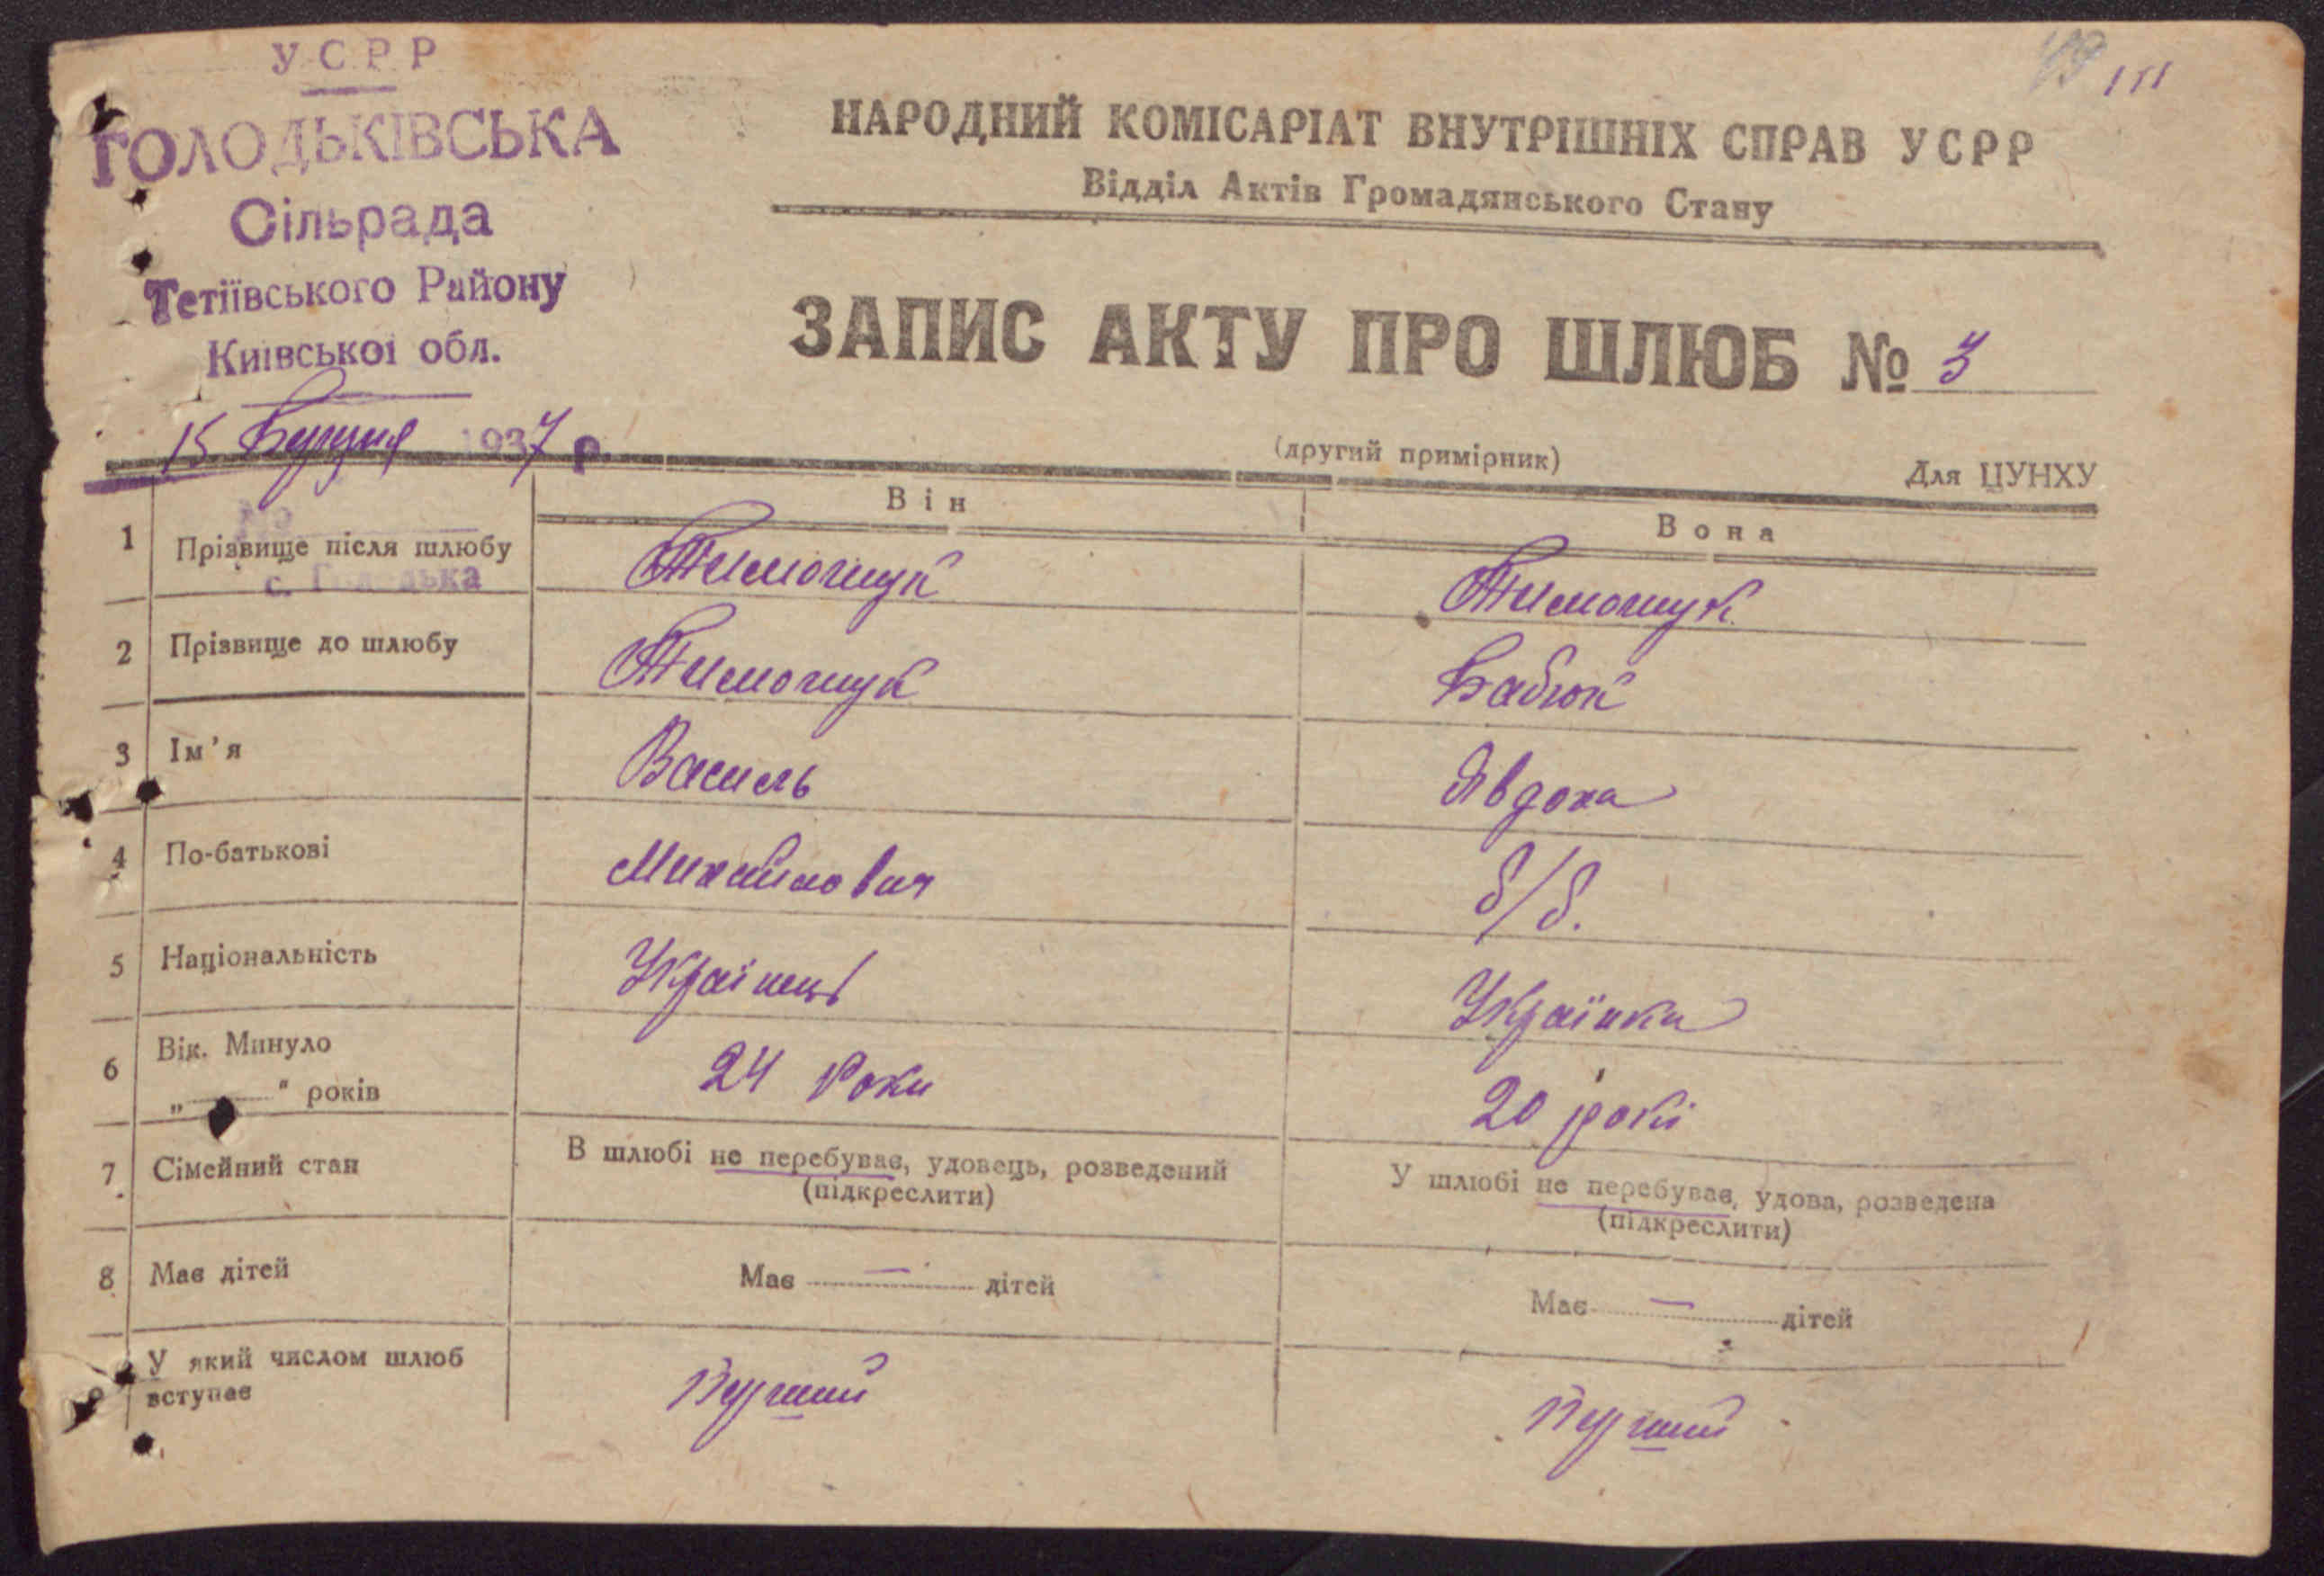 УСРР
ГОЛОДЬКІВСЬКА
Сільрада
Тетіївського Району
Київської обл.
15 1937 р.
№
с. Голодька
49 III
НАРОДНИЙ КОМІСАРІАТ ВНУТРІШНІХ СПРАВ УСРР
Відділ Актів Громадянського Стану
ЗАПИС АКТУ ПРО ШЛЮБ № 3
(другий примірник)
Для ЦУНХУ
Він
Вона
1 Прізвище після шлюбу Тимошук Тимошук
2 Прізвище до шлюбу Тимошук Бабюк
3 Ім'я Василь Явдоха
4 По-батькові Михайлович б/б.
5 Національність Українець Українка
6 Вік. Минуло
„ " років 24 роки 20 рокі
7 Сімейний стан В шлюбі не перебуває, удовець, розведений (підкреслити) У шлюбі не перебуває, удова, розведена (підкреслити)
8 Має дітей Має — дітей Має — дітей
9 У який числом шлюб
вступає Перший Перший